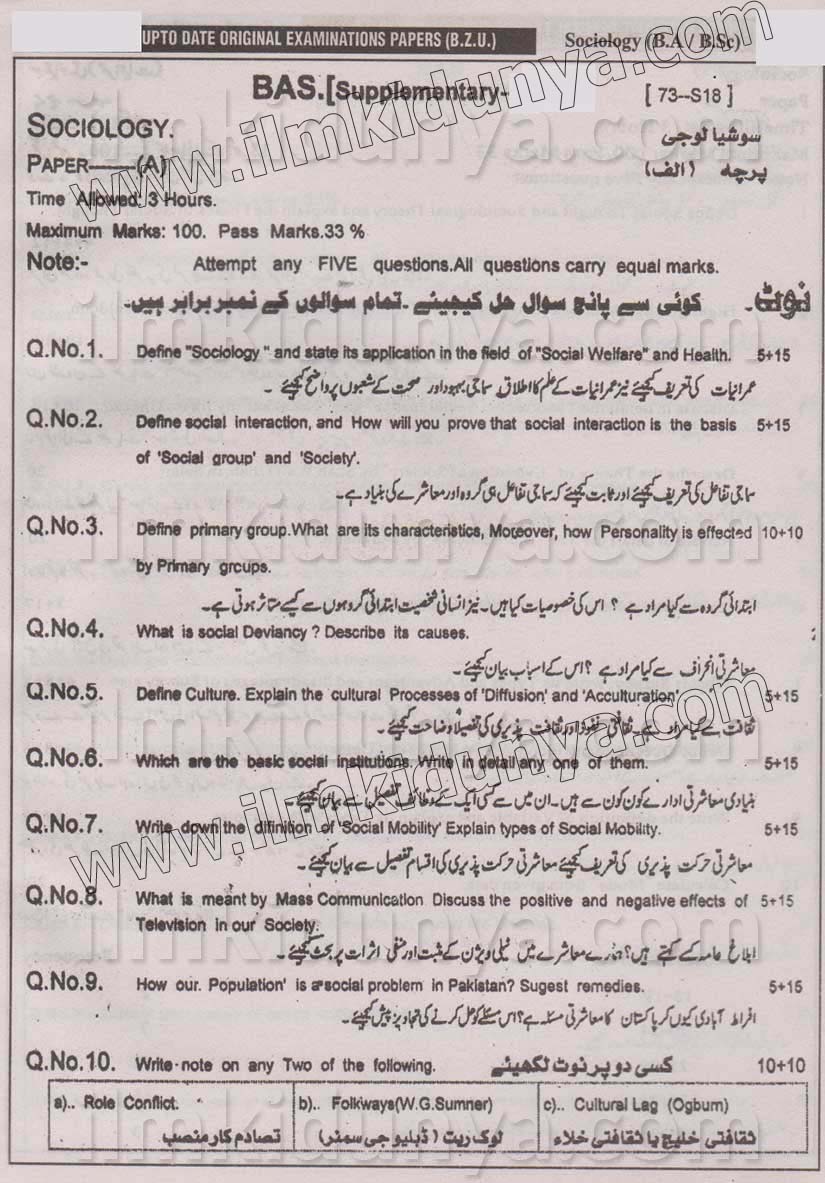 UPTO DATE ORIGINAL EXAMINATIONS PAPERS (B.Z.U.) Sociology (B.A / B.Sc)
BAS.[Supplementary- [ 73--S18 ]
SOCIOLOGY. سوشیالوجی
PAPER------(A) پرچہ (الف)
Time Allowed: 3 Hours.
Maximum Marks: 100. Pass Marks.33 %
Note:- Attempt any FIVE questions.All questions carry equal marks.
نوٹ۔ کوئی سے پانچ سوال حل کیجیئے۔تمام سوالوں کے نمبر برابر ہیں۔
Q.No.1. Define "Sociology " and state its application in the field of "Social Welfare" and Health. 5+15
عمرانیات کی تعریف کیجیئے نیز عمرانیات کے علم کا اطلاق سماجی بہبود اور صحت کے شعبوں پر واضح کیجیئے ۔
Q.No.2. Define social interaction, and How will you prove that social interaction is the basis 5+15
of 'Social group' and 'Society'.
سماجی تفاعل کی تعریف کیجیئے اور ثابت کیجیئے کہ سماجی تفاعل ہی گروہ اور معاشرے کی بنیاد ہے۔
Q.No.3. Define primary group.What are its characteristics, Moreover, how Personality is effected 10+10
by Primary grcups.
ابتدائی گروہ سے کیا مراد ہے ؟ اس کی خصوصیات کیا ہیں۔ نیز انسانی شخصیت ابتدائی گروہوں سے کیسے متاثر ہوتی ہے۔
Q.No.4. What is social Deviancy ? Describe its causes.
معاشرتی انحراف سے کیا مراد ہے ؟ اس کے اسباب بیان کیجیئے۔
Q.No.5. Define Culture. Explain the cultural Processes of 'Diffusion' and 'Acculturation' 5+15
ثقافت سے کیا مراد ہے۔ ثقافتی نفوذ اور ثقافت پذیری کی تفصیلاً وضاحت کیجیئے۔
Q.No.6. Which are the basic social institutions. Write in detail any one of them. 5+15
بنیادی معاشرتی ادارے کون کون سے ہیں۔ ان میں سے کسی ایک کے وظائف تفصیل سے بیان کیجیئے۔
Q.No.7. Write down the difinition of 'Social Mobility' Explain types of Social Mobility. 5+15
معاشرتی حرکت پذیری کی تعریف کیجیئے معاشرتی حرکت پذیری کی اقسام تفصیل سے بیان کیجیئے۔
Q.No.8. What is meant by Mass Communication Discuss the positive and negative effects of 5+15
Television in our Society.
ابلاغ عامہ کسے کہتے ہیں؟ ہمارے معاشرے میں ٹیلی ویژن کے مثبت اور منفی اثرات پر بحث کیجیئے۔
Q.No.9. How our. Population' is a social problem in Pakistan? Sugest remedies. 5+15
افراط آبادی کیوں کر پاکستان کا معاشرتی مسئلہ ہے؟ اس مسئلے کو حل کرنے کی تجاویز پیش کیجیئے۔
Q.No.10. Write note on any Two of the following. کسی دو پر نوٹ لکھیئے 10+10
a).. Role Conflict. b).. Folkways(W.G.Sumner) c).. Cultural Lag (Ogburn)
تصادم کار منصب لوک ریت (ڈبلیو جی سمنر) ثقافتی خلیج یا ثقافتی خلاء
www.ilmkidunya.com
www.ilmkidunya.com
ilmkidunya.com
ilmkidunya.com
ilmkidunya.com
ilmkidunya.com
ilmkidunya.com
ilmkidunya.com